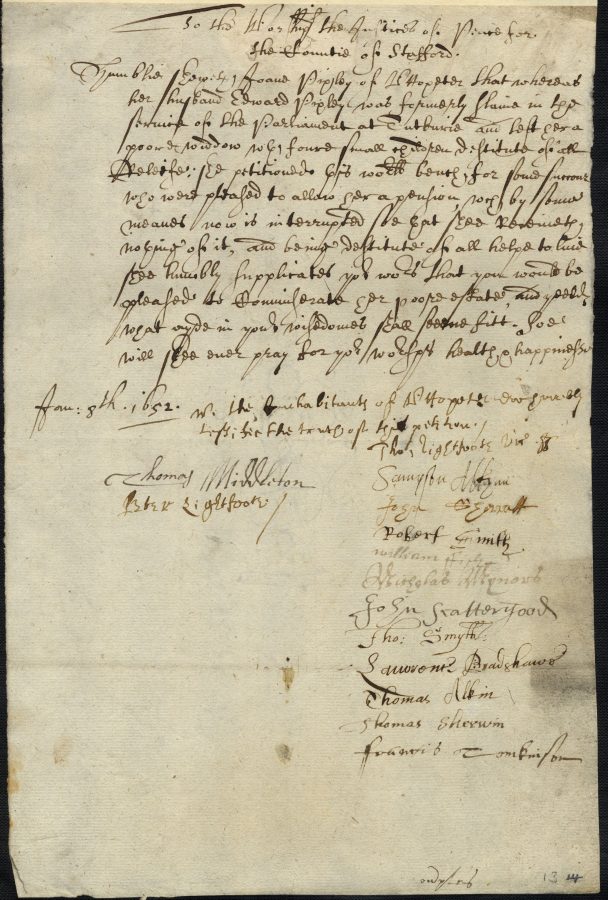 To the Wor:ll the Justices of Peace for
the Countie of Stafford.
Humblie sheweth Joane Pixley of Uttoxeter that whereas
her husband Edward Pixley was formerly slaine in the
service of the Parliament at Tutburie and left her a
poore widdow wth foure small children destitute of all
Releife: she petitioned this worll bench for some succour
who were pleased to allow her a pension, wch by some
meanes now is interrupted soe that shee Receiveth
nothing of it, and being destitute of all helpe to live
shee humbly supplicates yor worps that you would be
pleased to Commiserate her poore estate, and yeeld
what ayde in your wisedomes shall seeme fitt. Soe
will shee ever pray for yor worshps health & happinesse
Jan: 8th. 1652. We the Inhabitants of Uttoxeter doe hereby
testifie the truth of this petition
Tho: Lightfoote Vic
Thomas Middleton
Sampson
Peter Lightfoote
John Sherratt
Robert Smith
William
Nicholas Mynors
John Scattergood
Tho: Smyth
Lawrence Bradshawe
Thomas Alkin
Thomas Sherwin
Francis Tomkinson
13